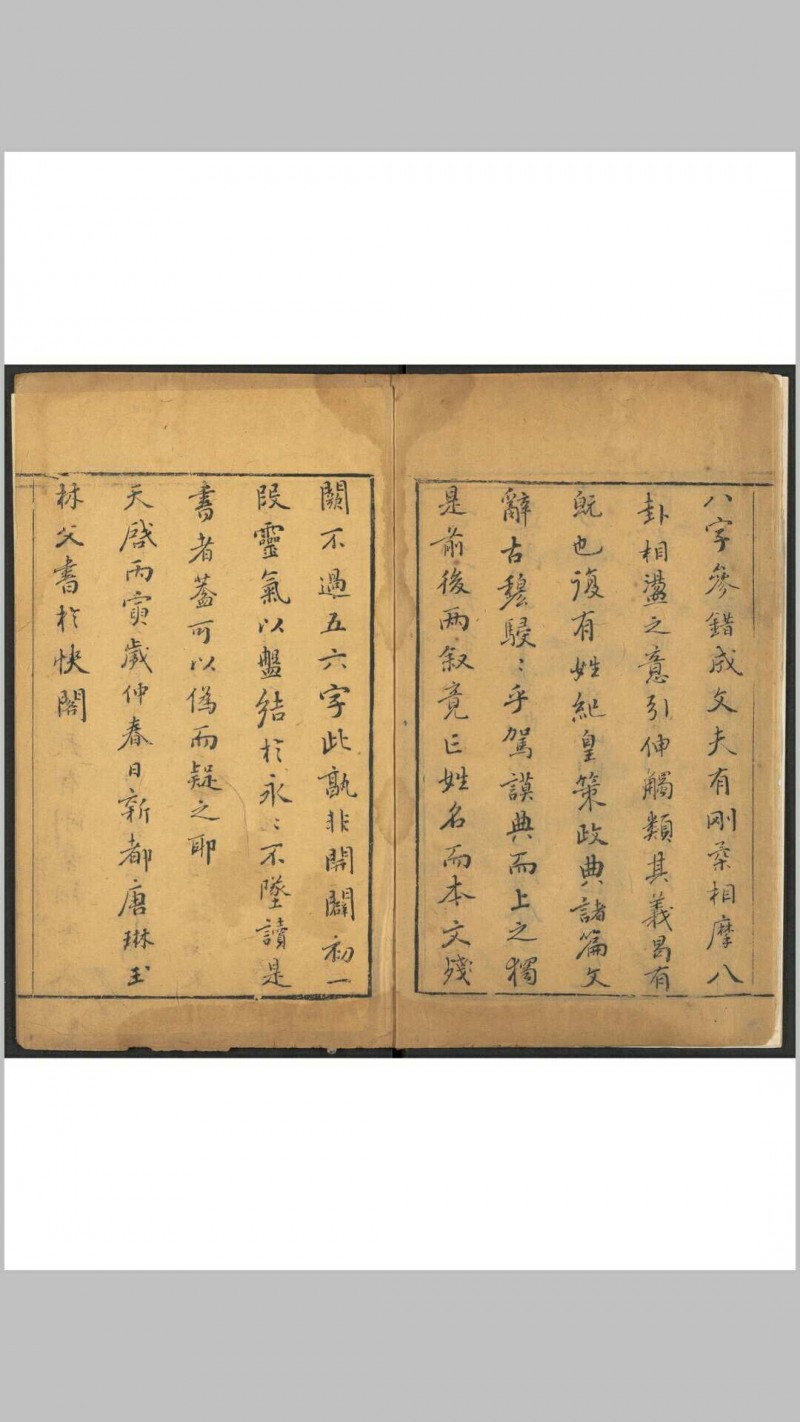 八字參錯成文夫有剛柔相摩八
卦相盪之意引伸觸類其義曷有
既也復有姓紀皇策政典諸篇文
辭古穆駸〻乎駕謨典而上之獨
是前後兩叙竟亡姓名而本文殘
闕不過五六字此孰非開闢初一
段靈氣以盤結於永〻不墜讀是
書者蓋可以偽而疑之耶
天啓丙寅歲仲春日新都唐琳玉
林父書於快閣